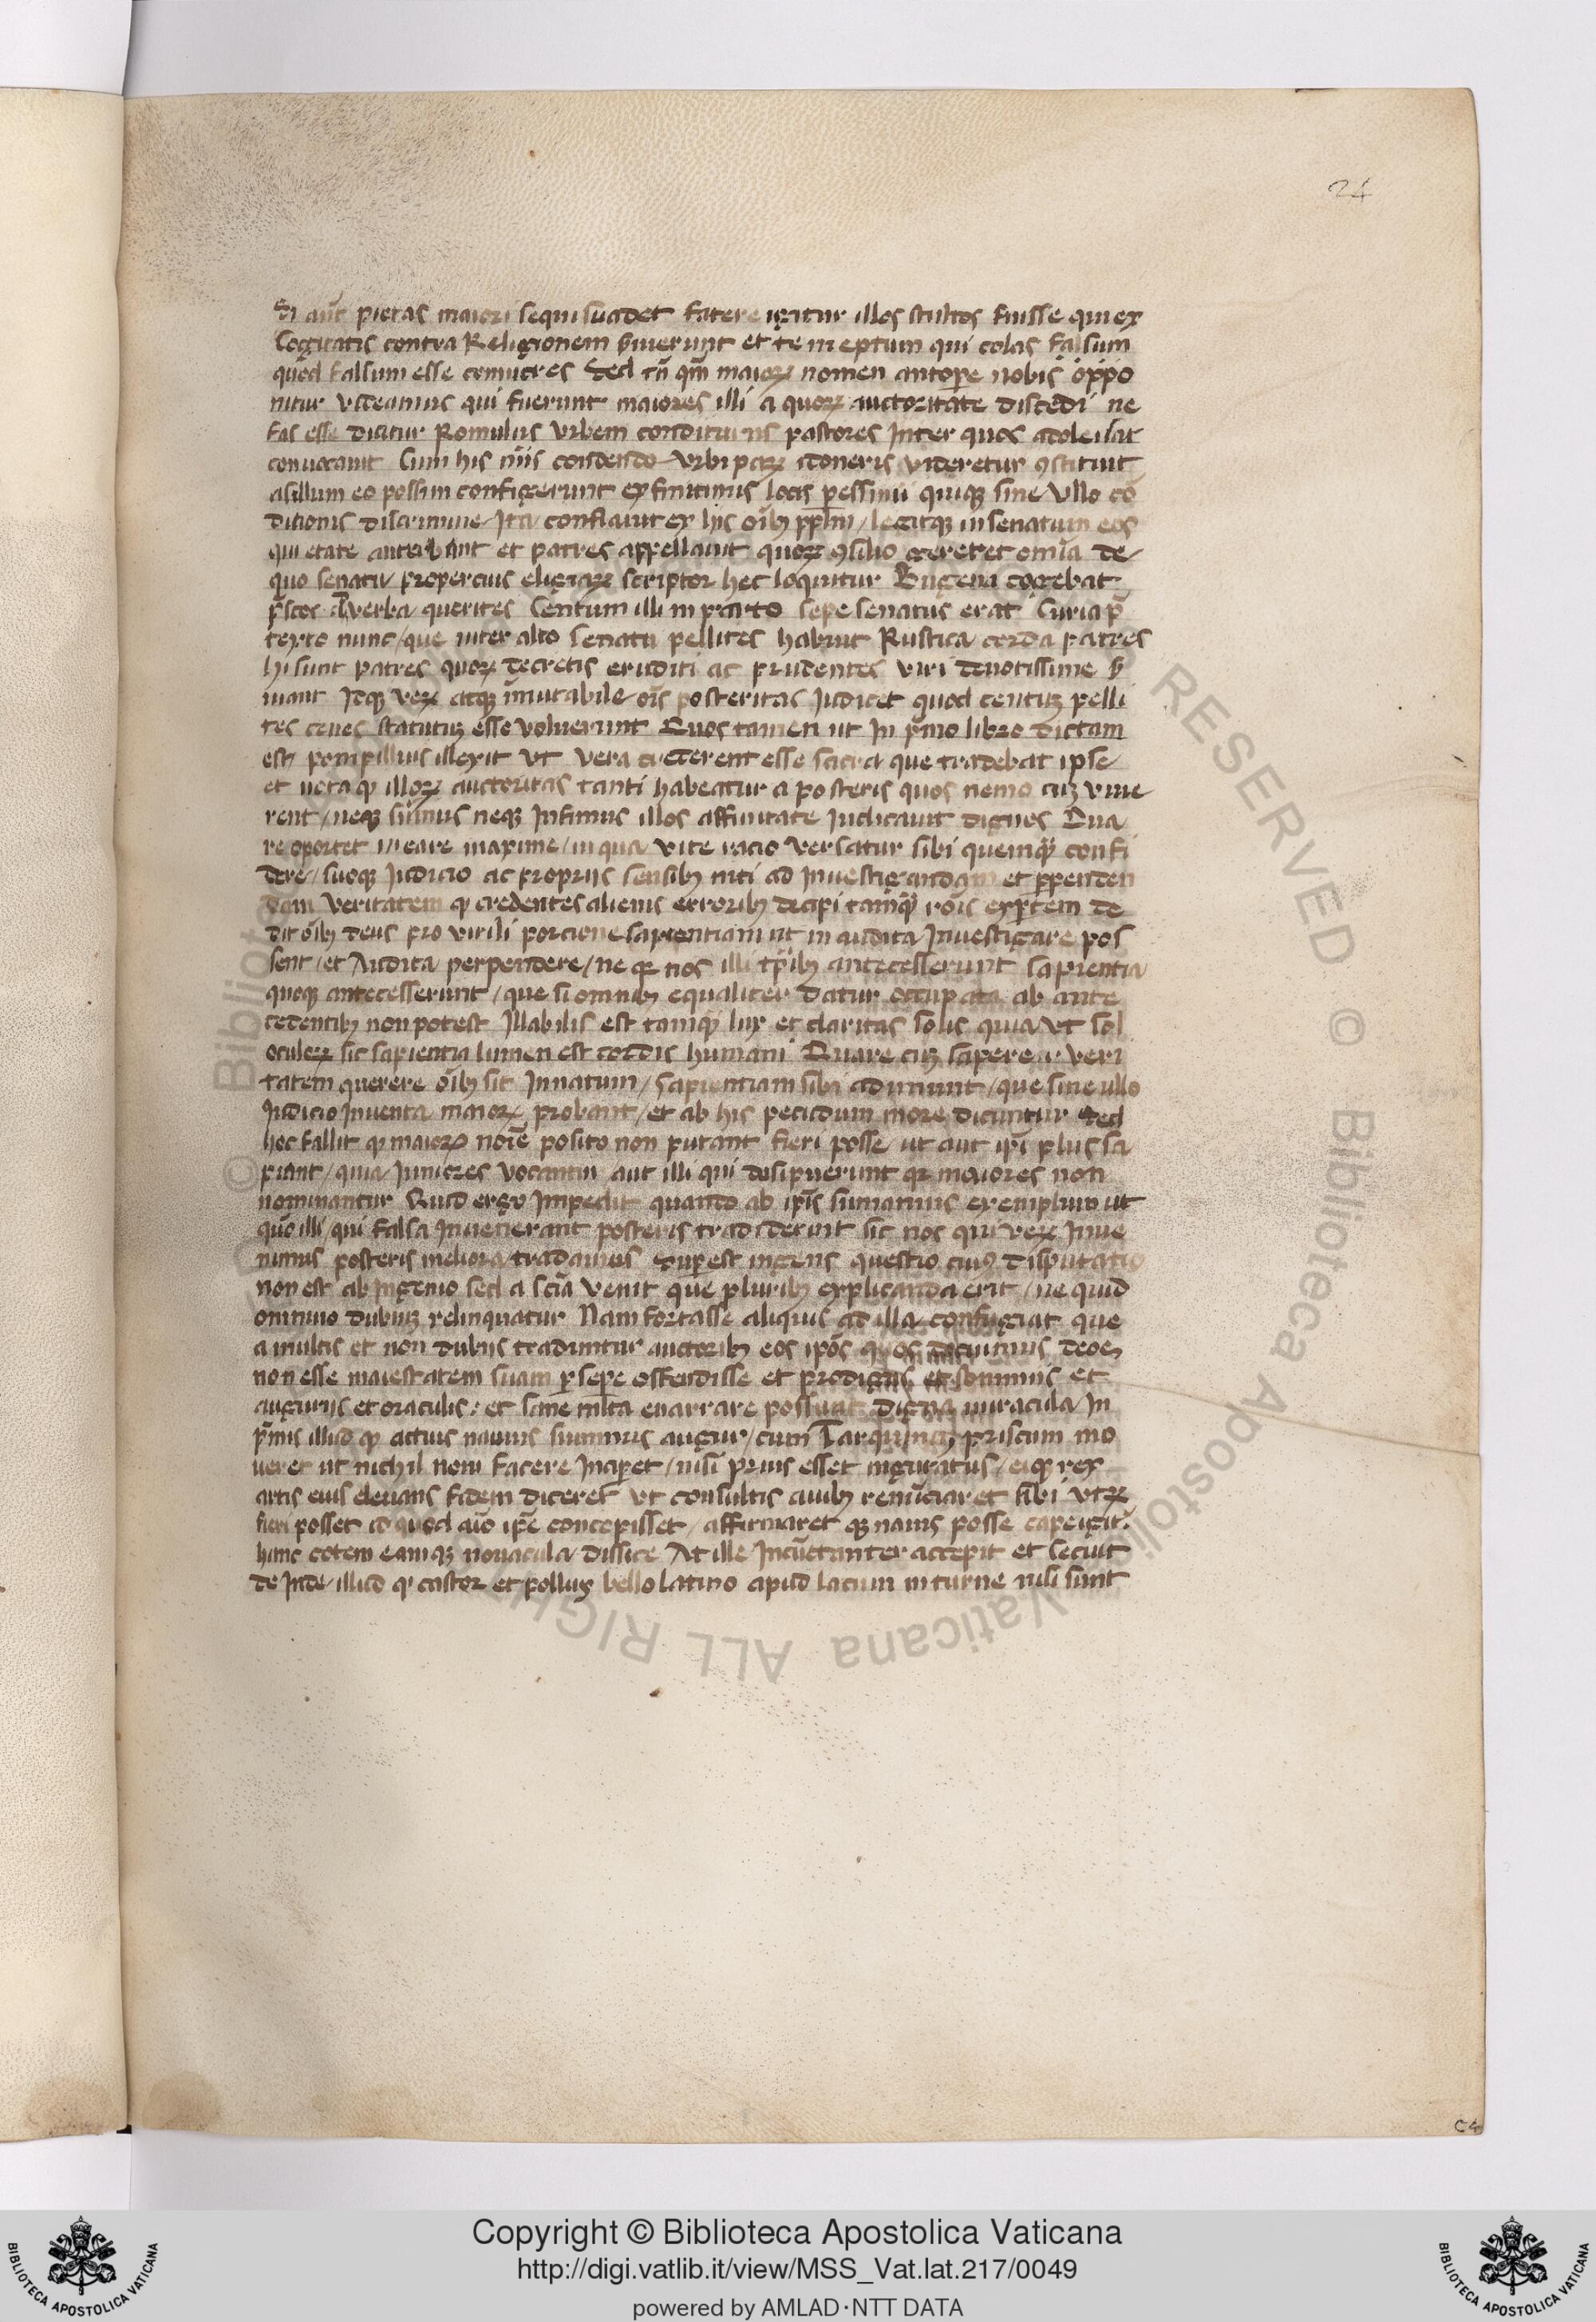 24
Si aut̃ pietas maiori sequi suadet fatere igitur illos stultos fuisse qui ex
Cogitatis contra Religionem s̃uierunt et te ineptum qui colas falsum
quod falsum esse conuices Sed tñ qm̃ maioꝝ nomen antope nobis oppo
nitur videamus qui fuerunt maiores illi a quoꝝ auctoritate discedi ne
fas esse dicitur Romulus vrbem conditurus pastores Inter quos adoleuat
conuocauit Cum his condendo vrbi idoneris videretur ꝯstituit
asillum eo possim configerunt ex finitimis locis pessimi quiqꝫ sine vllo cõ
ditionis discrimine Ita conflauit ex hijs oĩbꝫ pp̃lm / legitqꝫ in senatum eos
qui etate anteibant et patres appellauit quoꝝ ꝯsilio gereret omĩa de
quo senatu propercius eligiaꝝ scriptor hec loquitur Bugena cogebat
pͥscos verba querites Centum illi in prato sepe senatus erat Curia p̃
texto nunc / que niter alto senatu pellites habuit Rustica corda patres
hi sunt patres quoꝝ decretis eruditi ac prudentes viri deuotissime s̃
uiant Idqꝫ veꝝ atqꝫ ĩmutabile oĩs posteritas Iudicet quod centuꝫ pelli
tes ceues statutuꝫ esse voluerunt Quos tamen ut In pͥmo libro dictam
est pompillius illexit vt vera crederent esse sacra que tradebat ipse
et uera qͥ illoꝝ auctoritas tanti habeatur a posteris quos nemo cuꝫ viue
rent / neqꝫ sũmus neqꝫ Infimus illos affinitate Iudicauit dignos Qua
re oportet in eare maxime / in qua vite racio versatur sibi quemqꝫ confi
dere / suoqꝫ Iudicio ac proprijs sensibꝫ niti ad Inuestigandam et ꝑpenden
dam veritatem qͥ credentes alienis erroribꝫ decipi tamqͣ̃ rõis exꝑtem de
dit oĩbꝫ deus pro virili porcione sapientiam ut in audita Inuestigare pos
sent / et Audita perpendere / ne qꝛ nos illi tp̃ibꝫ antecesserunt sapientia
quoqꝫ antecesserunt / que si omnibꝫ equaliter datur occupata ab ante
cedentibꝫ non potest Illabilis est tamqͣ̃ lux et claritas solis quia vt sol
oculoꝝ sic sapientia lumen est cordis humani Quare cuꝫ sapere i. veri
tatem querere oĩbꝫ sit Innatum / sapientiam sibi adimunt / que sine ullo
Iudicio Inuenta maioꝝ probant / et ab his pecudum more dicuntur Sed
hoc fallit qͥ maioꝝ noĩe posito non putant fieri posse / ut aut ip̃i plus sa
piant / quia Iuniores vocantur aut illi qui desipuerunt qꝛ maiores non
nominantur Quid ergo Impedit quando ab ip̃is sumamus exemplum ut
quõ illi qui falsa Inuenerant posteris tradiderunt sic nos qui veꝝ Inue
nimus posteris meliora tradamus Suꝑest ingens questio cuiꝰ disputatio
non est ab Ingenio sed a scĩa venit que pluribꝫ explicanda erit / ne quid
omnino dubiuꝫ relinquatur Nam fortasse aliquis ad illa confugiat que
a multis et non dubijs traduntur auctoribꝫ eos ip̃os quos docuimus deos
non esse maiestatem suam p̱sepe ostendisse et prodigijs et somnijs et
augurijs et oraculis: et sane ml̃ta enarrare possunt digna miracula In
pͥmis illud qͥ actius nauius summus augur / cum Tarquiniuꝫ priscum mo
ueret ut nichil noui facere Inciꝑet / nisi prius esset inguratus / eiqꝫ rex
artis eius eleuans fidem diceret vt consultis auibꝫ renũciaret sibi vtꝝ
fieri posset id quod aĩo ip̃e concepisset / affirmaret qꝫ nauis posse cape igit̃
hunc cotem eamqꝫ nouacula dissice At ille Incũctanter accepit et secuit
de Inde illud qͥ castor et pollux bello latino apud lacum inturne uisi sunt
C4
Copyright © Biblioteca Apostolica Vaticana
http://digi.vatlib.it/view/MSS_Vat.lat.217/0049
powered by AMLAD·NTT DATA